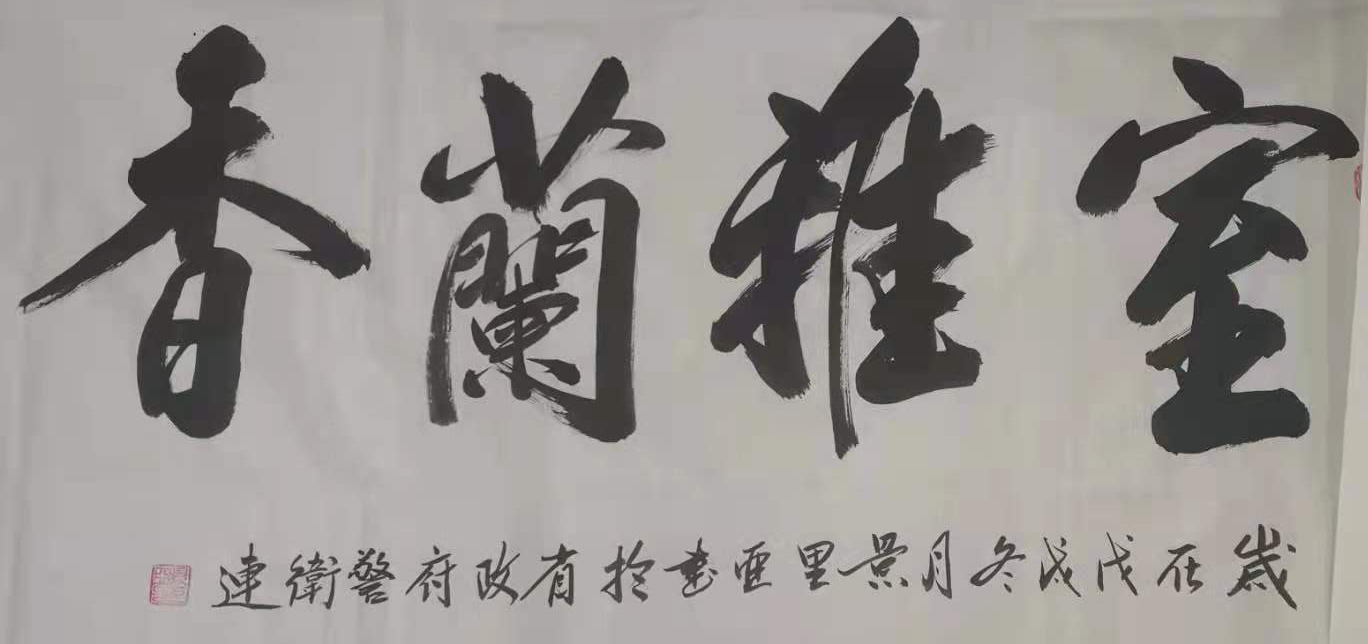 室雅蘭香
歲在戊戌冬月景里亜書於省政府警衛連